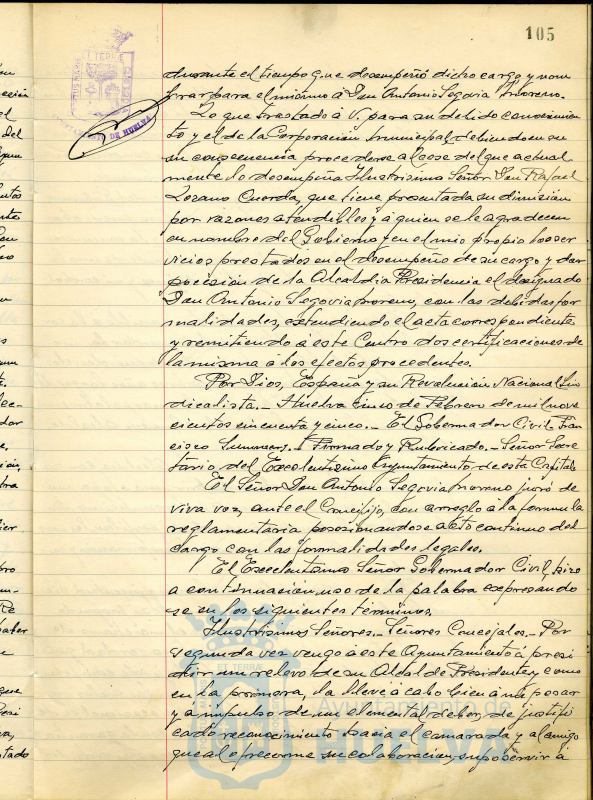 105
durante el tiempo que desempeñó dicho cargo y nom
brar para el mismo á Don Antonio Segovia Moreno.
Lo que traslado á V. para su debido conocimien
to y el de la Corporación Municipal, debiendo en su
su consecuencia procederse al cese del que actual
mente lo desempeña Ilustrísimo Señor Don Rafael
Lozano Cuerda, que tiene presentada su dimisión
por razones atendibles y á quien se le agradecen
en nombre del Gobierno y en el mio propio los ser
vicios prestados en el desempeño de su cargo y dar
posesión de la Alcaldía Presidencia el designado
Don Antonio Segovia Moreno, con las debidas for
malidades, extendiendo el acta correspondiente
y remitiendo á este Centro dos certificaciones de
la misma á los efectos procedentes.
Por Dios, España y su Revolución Nacional Sin
dicalista.- Huelva cinco de Febrero de mil nove
cientos cincuenta y cinco.- El Gobernador Civil. Fran
cisco Summers.- Firmado y Rubricado.- Señor Secre
tario del Excelentísimo Ayuntamiento de esta Capital.
El Señor Don Antonio Segovia Moreno juró de
viva voz, ante el Crucifijo, con arreglo á la formula
reglamentaria posesionandose acto continuo del
cargo con las formalidades legales.
El Excelentísimo Señor Gobernador Civil, hizo
a continuación, uso de la palabra expresando
se en los siguientes términos.
Ilustrísimos Señores.- Señores Concejales.- Por
segunda vez vengo á este Ayuntamiento á presi
dir un relevo de su Alcalde Presidente y como
en la primera, la llevé á cabo bien á mi pesar
y a impulso de un elemental deber, de justifi
cado reconocimiento hacia el camarada y al amigo
que al ofrecerme su colaboración, supo servir á
ET TERRAE
DE HUELVA
ET TERRAE
Ayuntamiento de
HUELVA